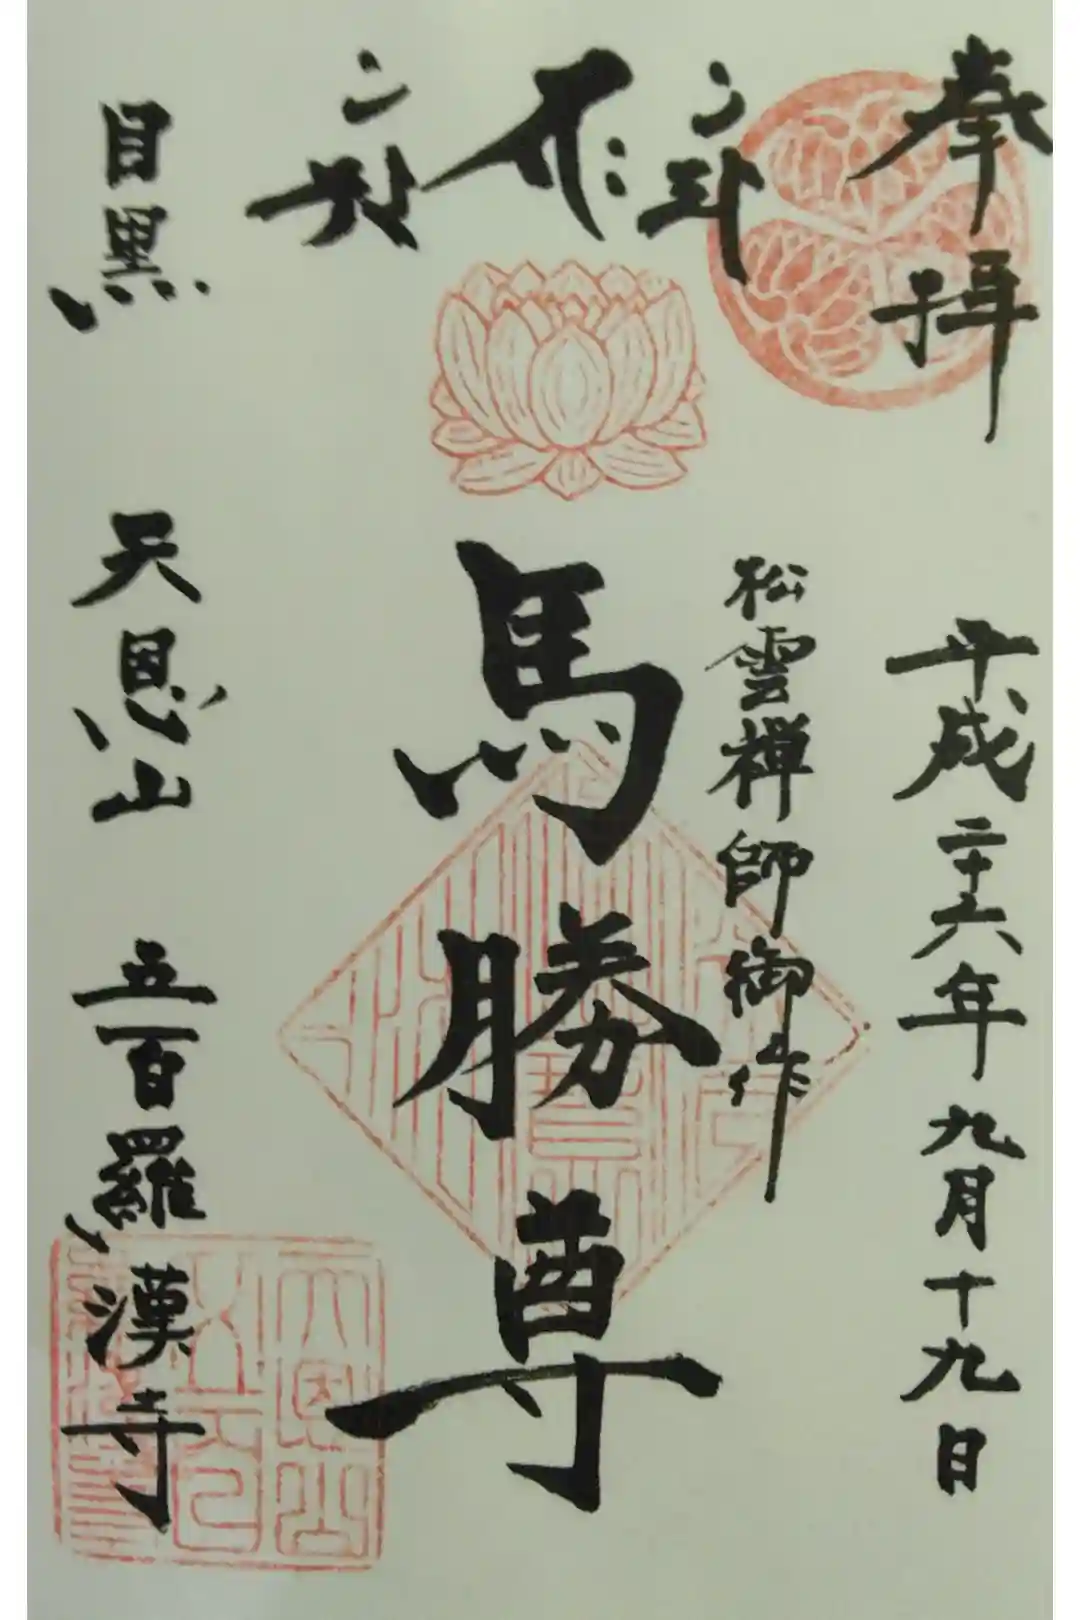 奉拝
平成二十六年九月十九日
松雲禅師御作
馬勝尊
目黒 天恩山 五百羅漢寺